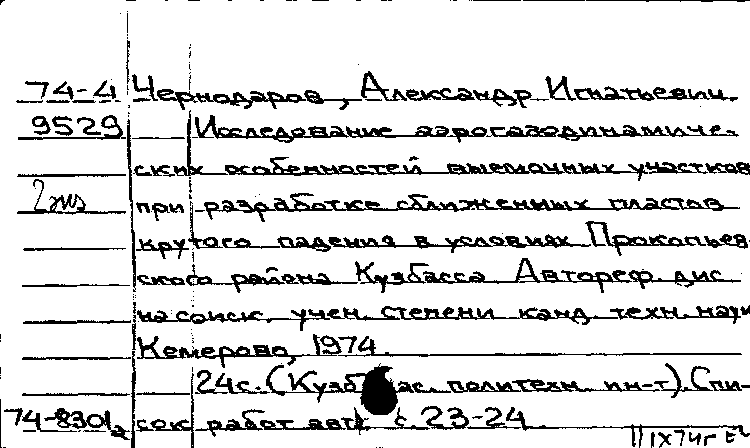 74-4 Чернодаров, Александр Игнатьевич.
9529 Исследование аэрогазодинамиче-
ских особенностей выемочных участков
2 экз при разработке сближенных пластов
крутого падения в условиях Прокопьев-
ского района Кузбасса Автореф. дис
на соиск. учен. степени канд. техн. наук
Кемерово, 1974.
24с. (Кузб. политехн. ин-т). Спи-
74-8301 сок работ авт. с. 23-24